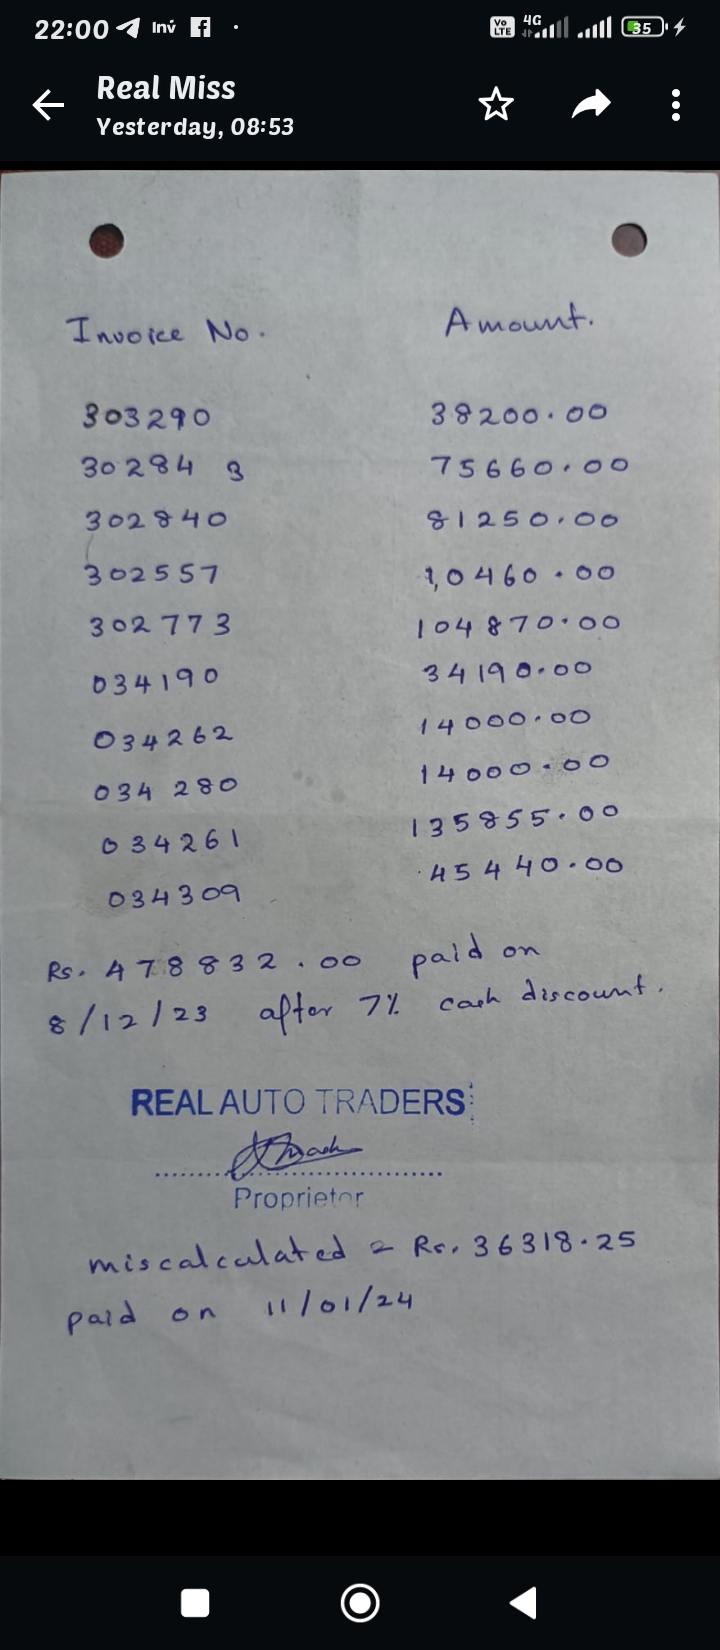 22:00 Inv
Vo LTE 4G 35
Real Miss
Yesterday, 08:53
Invoice No. Amount.
303290 38200.00
30284 3 75660.00
302840 81250.00
302557 10460.00
302773 104870.00
034190 34190.00
034262 14000.00
034 280 14000.00
034261 135855.00
034309 45440.00
Rs. 478832.00 paid on
8/12/23 after 7% cash discount.
REAL AUTO TRADERS
Proprietor
miscalculated Rs. 36318.25
paid on 11/01/24